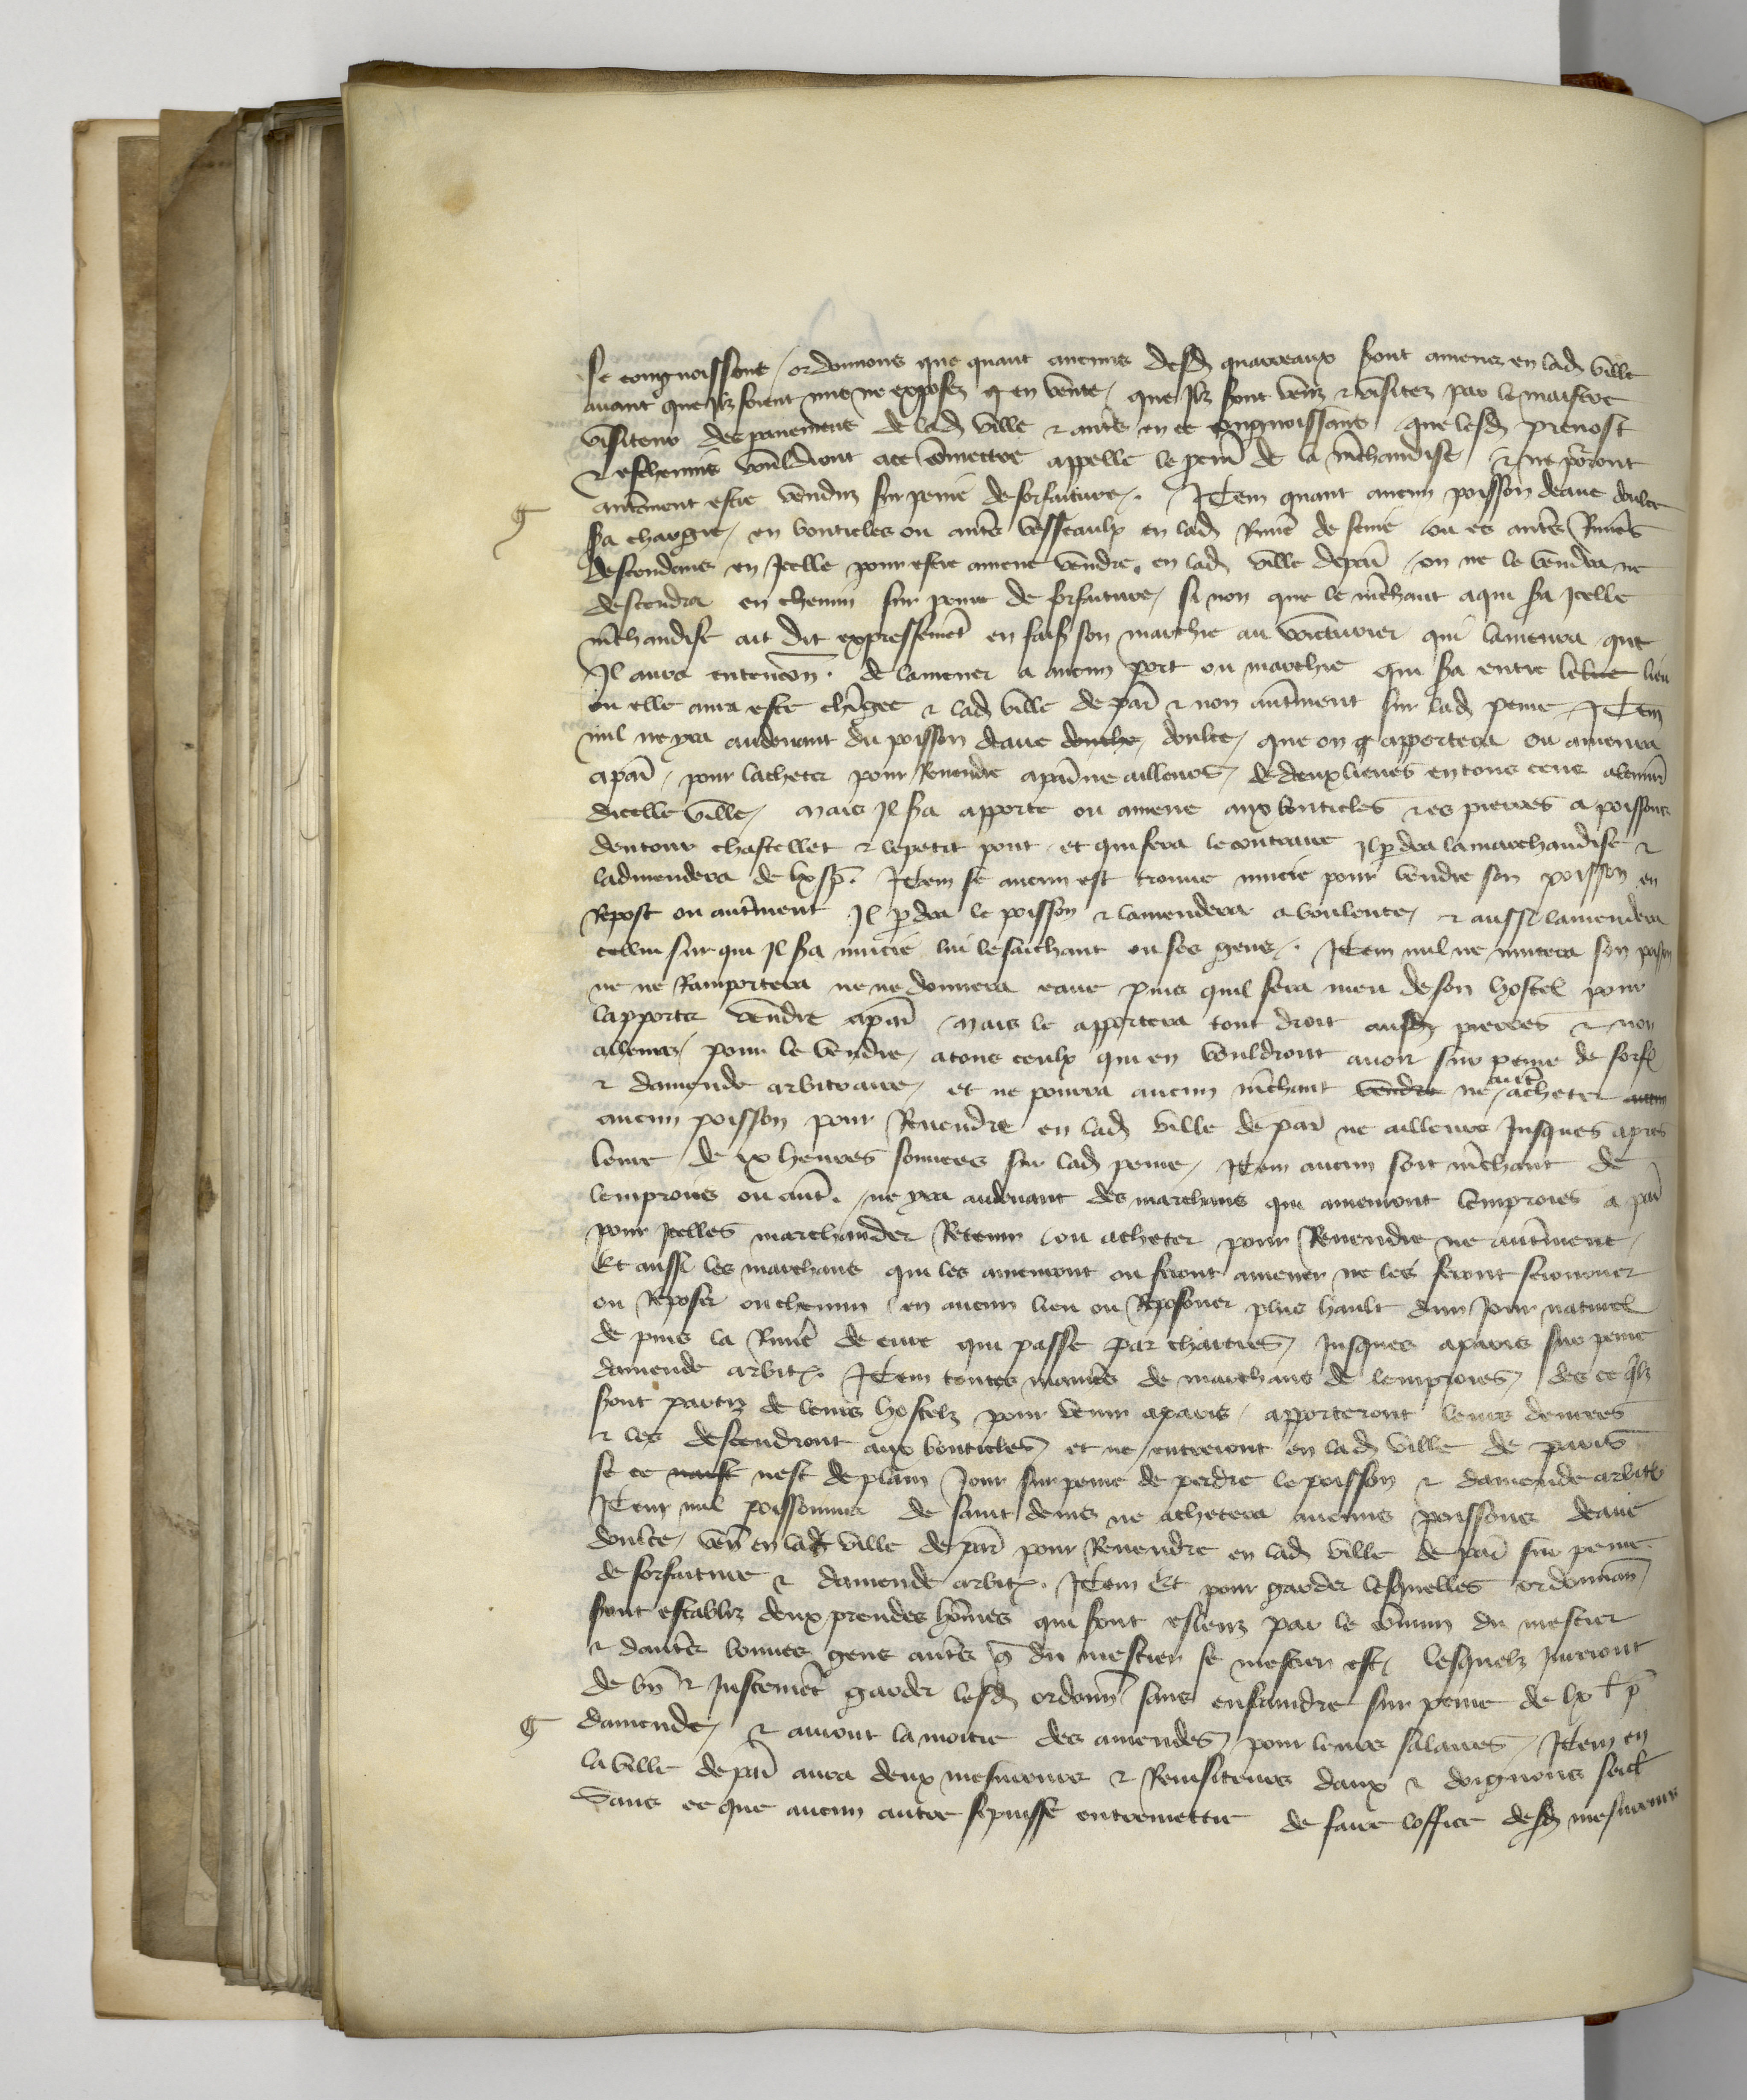 se congnoissent / ordonnons que quant aucuns desd quarreaux sont amenez en lad ville
auant que Ilz soient mis ne exposez en vente / que Ilz sont venz & visitez par le maistre
visiteur des pauemens de lad ville & autēs en ce congnoissans que lesd preuost
& escheuins vouldront ace cōmectre appelle le pcur de la mchandise / & ne porront
autment estre venduz sur peine de forfaiture /. Item quant aucun poisson deaue doulce
sa chargie / en bouticles ou autēs vesseaulx en lad Riuie de seine ou es autēs Riuies
descendans en Icelle pour estre amene vendre en lad ville depar / on ne le vendra ne
descendra en chemin sur peine de forfaiture / si non que le mchant aqui sa Icelle
mchandise ait dit expressemēt en fais son marchie au voicturier qui lamenra que
Il aura entencōn . de lamener a aucun port ou marchie qui sa entre le lieu
ou elle aura este chgee & lad ville de par & non autment sur lad peine Item
nul ne yra audeuant du poisson deaue douche doulce / que on apportera ou amenra
apar / pour lacheter pour Reuendre aparne ailleurs / de deux lieues en tous cens
dicelle ville / mais Il sa apporte ou amene aux bouticles & es pierres a poissons
dentour chastellet & le petit pont et qui fera le contraire Il pdra la marchandise &
ladmendera de lx sp. Item se aucun est trouue mucie pour vendre son poisson en
Repost ou autment Il pdra le poisson & lamendera a voulente / & aussi lamendera
cellui sur qui Il sa mucie lui le saichant ou ses gens /. Item nul ne mucera son poisson
ne ne Ramportera ne ne donnera eaue puis quil sera meu de son hostel pour
lapporter vendre apar mais le apportera tout droit ausd pierres & non
ailleurs / pour le vendre / a tous ceulx qui en vouldront auoir sur peine de forf
& damende arbitraire / et ne pourra aucun mchant vendre ne aut acheter aucun
aucun poisson pour Reuendre en lad ville de par ne ailleurs Jusques apres
leure de ix heures sonnees sur lad peine / Item aucun soit mchant de
lemproies ou aut . ne yra audeuant des marchans qui amenront lemproies a par
pour Icelles marchander Retenir ou acheter pour Reuendre ne autment /
Et aussi les marchans qui les amenront ou feront amener ne les feront seiourner
ou Reposer ou chemin en aucun lieu ou Reposouer plus hault dun Jour naturel
de puis la Riuie de eure qui passe par chartres / Jusques aparis sur peine
damende arbit . Item toutes manies de marchans de lemproies / des ce qlz
sont partiz de leurs hostelz pour venir aparis / apporteront leurs denrees
& les descendront aux bouticles et ne entreront en lad ville de paris
se ce nest nest de plain Jour sur peine de perdre le poisson & damende arbit
Item nul poissonnier de saint denis ne achetera aucuns poissons deaue
doulce / ven en lad ville de par pour Reuendre en lad ville de par sur peine
de forfaiture & damende arbit . Item Et pour garder lesquelles ordonnan
sont establiz deux preudes hōmes qui sont esleuz par le cōmun du mestier
& dautēs bonnes gens autēs q du mestier se mestier est / lesquelz Jureront
de bn & Justemēt garder lesd ordonn sans enfraindre sur peine de lx s p
damende / & auront la moitie des amendes / pour leurs salaires / Item en
la ville de par aura deux mesureurs & Reuisiteurs daux & doignons seul
Sans ce que aucun autre se puisse entremettre de faire loffice desd mesureurs